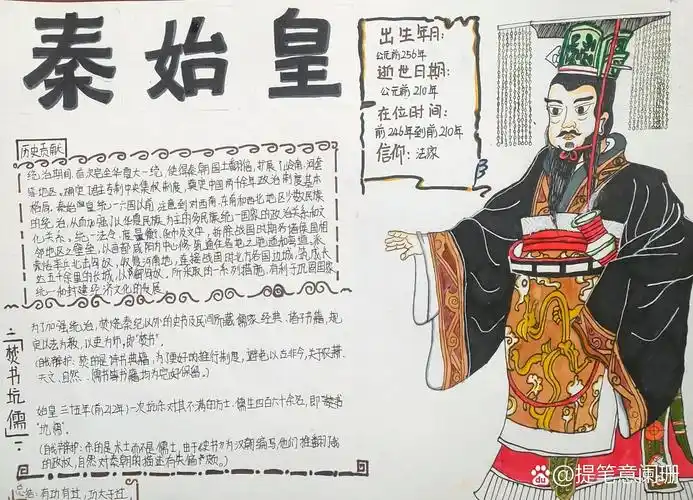 秦始皇
出生年月:
公元前256年
逝世日期:
公元前210年
在位时间:
前246年到前210年
信仰: 法家
历史贡献
统治期间,首次完全华夏大一统,使得秦朝国土翻倍,扩展了岭南,河套
等地区,确定了
格局,秦始皇统一六国以前,注意到对西南,东南和西北地区少数民族
的统治,从而加强了以华夏民族为主的多民族统一国家的政治关系和文
化关系,统一法令,度量衡,货币及文字,拆除战国时期各诸侯国相
邻地区之壁垒,以首都咸阳为中心修筑通往各地之驰道和直道,派
蒙恬率兵北击匈奴,收复河南地,连接战国时北方各国边城,筑成长
达五千余里的长城,以御匈奴,所采取的一系列措施,有利于巩固国家
统一和封建经济文化的发展
二「焚书坑儒」
为了加强统治,焚烧秦纪以外的史书及民间所藏儒家经典、诸子书籍,规
定以法为教,以吏为师,即"焚书".
(自我辩护:焚的是诗书典籍,为了更好的推行制度,避免以古非今,关于农耕、
天文、自然、儒书等书籍均为完好保留。)
始皇三十五年(前212年)一次坑杀对其不满的方士、儒生四百六十余名,即"
坑儒".
(自我辩护:杀的是术士而不是儒士,由于《史书》为汉朝编写,他们推翻了我
的政权,自然对秦朝的描述有失偏颇。)
总结:有功有过,功大于过
Bai du @提笔意阑珊